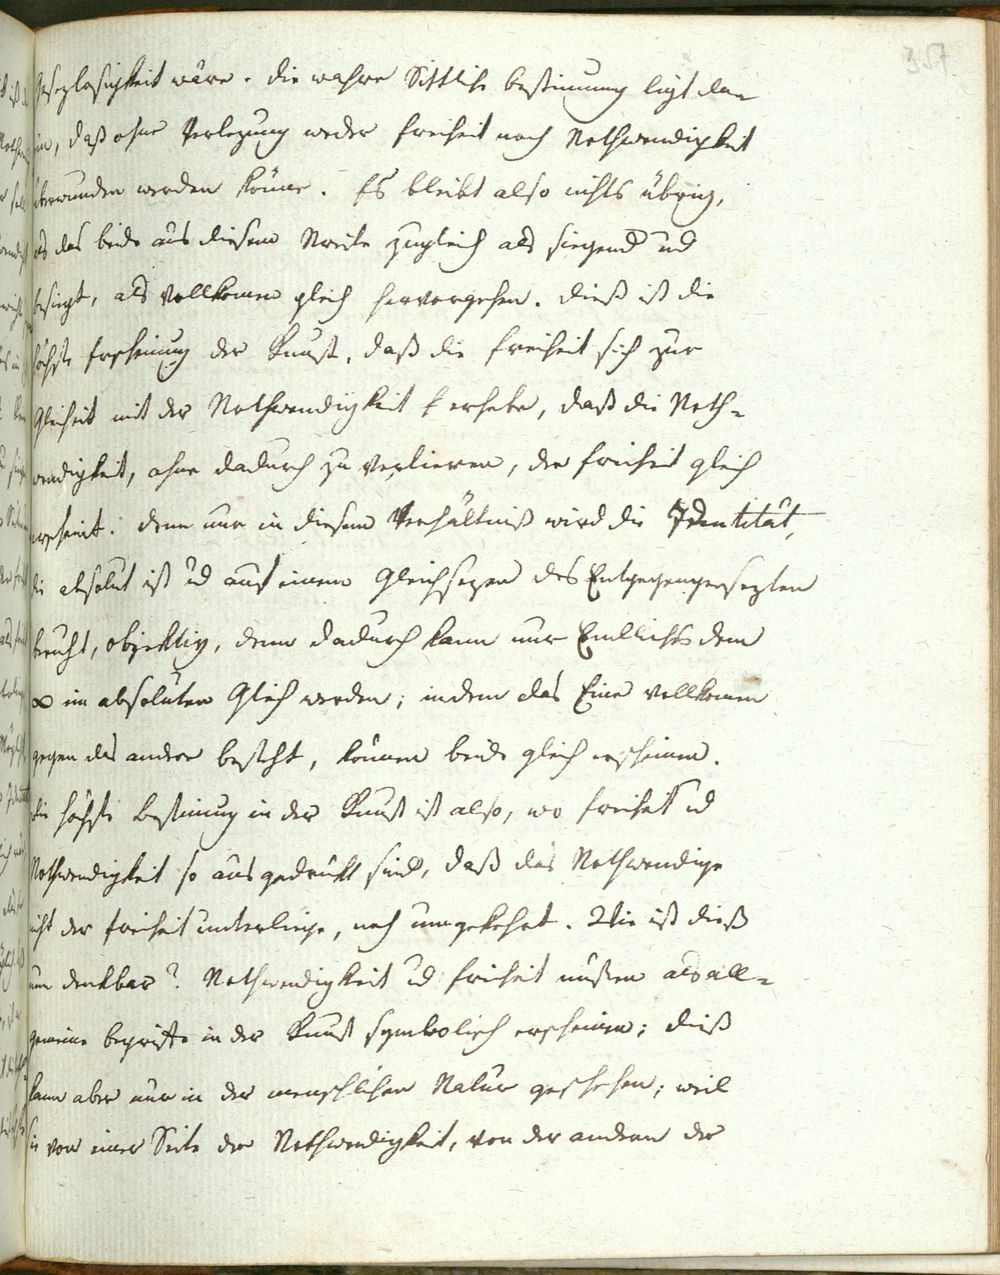 357.
Gesezlosigkeit wäre. Die wahre Sittliche bestimung ligt da-
rin, daß ohne Verlezung weder Freiheit noch Nothwendigkeit
überwunden werden könne. Es bleibt also nichts übrig,
als das beide aus diesem Streite zugleich als siegend ud
besiegt, als vollkomen gleich hervorgehen. Dieß ist die
höchste Erscheinung der Kunst, daß die Freiheit sich zur
Gleicheit mit der Nothwendigkeit erhebe, daß die Noth-
wendigkeit, ohne dadurch zu verlieren, der Freiheit gleich
erscheint. Denn nur in diesem Verhältniß wird die Identität,
die absolut ist ud auf einem Gleichsezen des Entgegengesezten
beruht, objektiv, denn dadurch kann nur Endliches dem
∞ im absoluten Gleich werden; indem das Eine vollkomen
gegen das andere besteht, können beide gleich erscheinen.
Die höchste Bestimung in der Kunst ist also, wo Freiheit ud
Nothwendigkeit so ausgedrükt sind, daß das Nothwendige
nicht der Freiheit unterliege, noch umgekehrt. Wie ist dieß
nun denkbar? Nothwendigkeit ud Freiheit müßen als all-
gemeine begriffe in der Kunst symbolisch erscheinen; dieß
kann aber nur in der menschlichen Natur geschehen; weil
sie von einer Seite der Nothwendigkeit, von der andern der